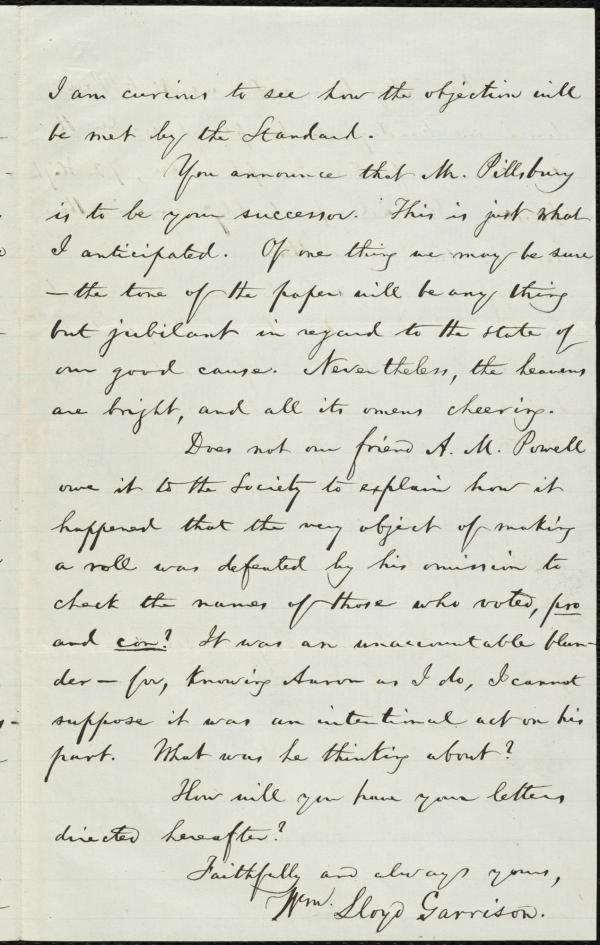 I am curious to see how the objection will
be met by the Standard.
You announce that Mr. Pillsbury
is to be your successor. This is just what
I anticipated. Of one thing we may be sure
— the tone of the paper will be any thing
but jubilant in regard to the state of
our good cause. Nevertheless, the heavens
are bright, and all its omens cheering.
Does not our friend A. M. Powell
owe it to the Society to explain how it
happened that the very object of making
a roll was defeated by his omission to
check the names of those who voted, pro
and con? It was an unaccountable blun-
der — for, knowing Aaron as I do, I cannot
suppose it was an intentional act on his
part. What was he thinking about?
How will you have your letters
directed hereafter?
Faithfully and always yours,
Wm. Lloyd Garrison.